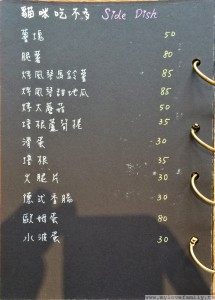 貓咪吃不多 Side Dish
薯塊 50
脆薯 80
烤風琴馬鈴薯 85
烤風琴甜地瓜 85
烤大蘑菇 50
培根蘆筍捲 35
滑蛋 30
培根 35
火腿片 30
德式香腸 30
歐姆蛋 80
水波蛋 30
www.mylovefamily.tw